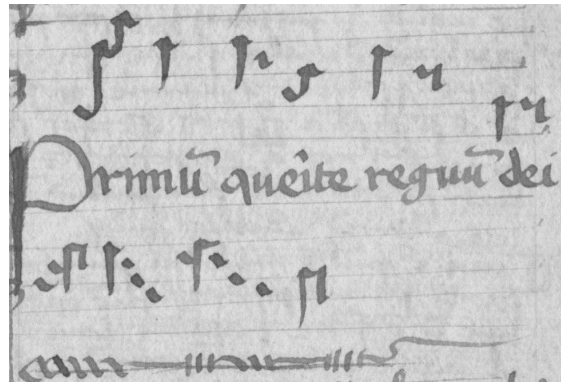 Primū querite regnū dei